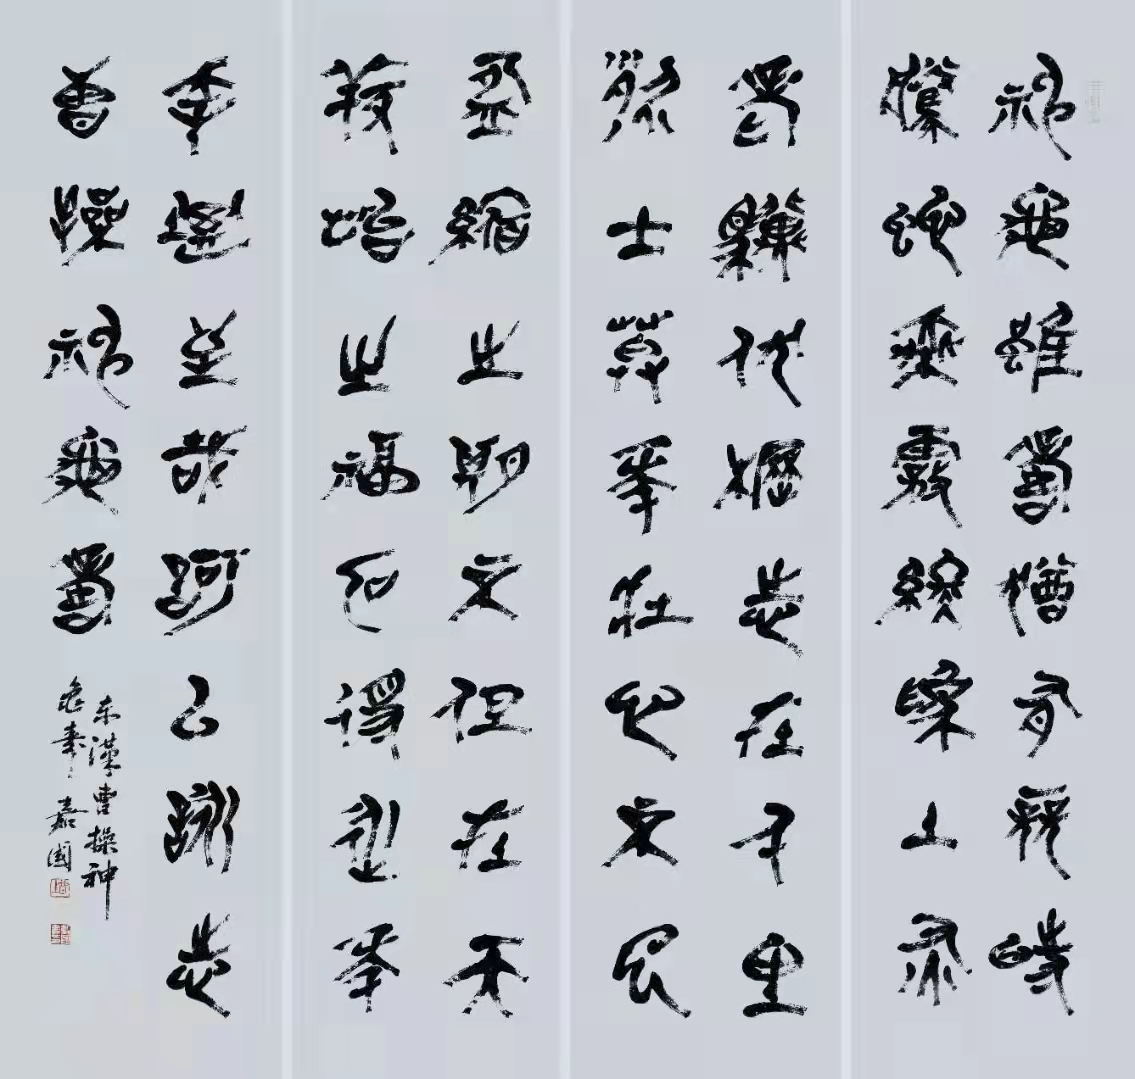 神龜雖壽猶有竟時
騰蛇乘霧終為土灰
老驥伏櫪志在千里
烈士暮年壯心不已
盈縮之期不但在天
養怡之福可得永年
幸甚至哉歌以詠志
曹操神龜壽
东漢曹操神
龜壽嘉國